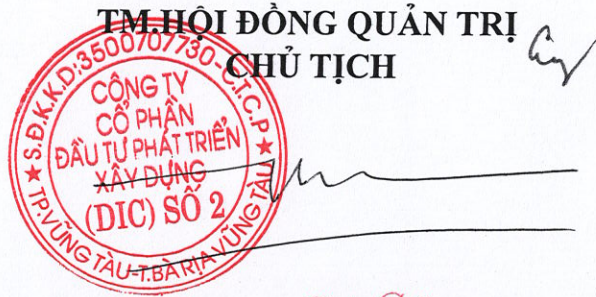 TM.HỘI ĐỒNG QUẢN TRỊ
CHỦ TỊCH
S.Đ.K.K.D:3500707730-C.T.C.P
CÔNG TY
CỔ PHẦN
ĐẦU TƯ PHÁT TRIỂN
XÂY DỰNG
(DIC) SỐ 2
TP.VŨNG TÀU-T.BÀ RỊA VŨNG TÀU